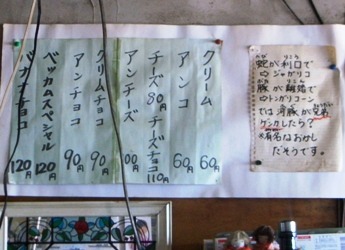 クリーム 60円
アンコ 60円
チーズ80円 チーズチョコ110円
アンチーズ 100円
クリムチョコ 90円
アンチョコ 90円
ベッカムスペシャル 120円
バナナチョコ 120円
蛇が利口で
⇨ジャガリコ
豚が離婚で
⇨トンガリコーン
では海豚が兄弟
ゲンカしたら?
※有名なおかし
だそうです。